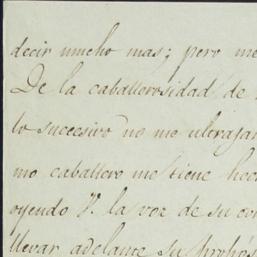 decir mucho mas; pero me
De la caballerosidad de
lo succesivo no me ultrajar
mo caballero me tiene
oyendo V. la voz de su
llevar adelante su